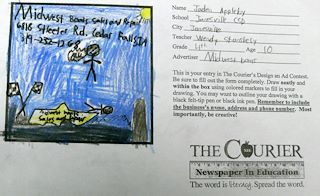 Midwest Boats Sales and Repair
6816 Streeter Rd. Cedar Falls, IA
319-232-12
Name Jaden Appleby
School Janesville
City Janesville
Teacher Wendy
Grade 4th Age 10
Advertiser Midwest Boats
This is your entry in The Courier's Design an Ad Contest.
Be sure to fill out the form completely. Draw neatly and
within the box using colored markers to fill in your
drawing. You may want to outline your drawing with a
black felt-tip pen or black ink pen. Remember to include
the business's name, address and phone number. Most
importantly, be creative!
THE COURIER
Newspaper In Education
The word is literacy. Spread the word.